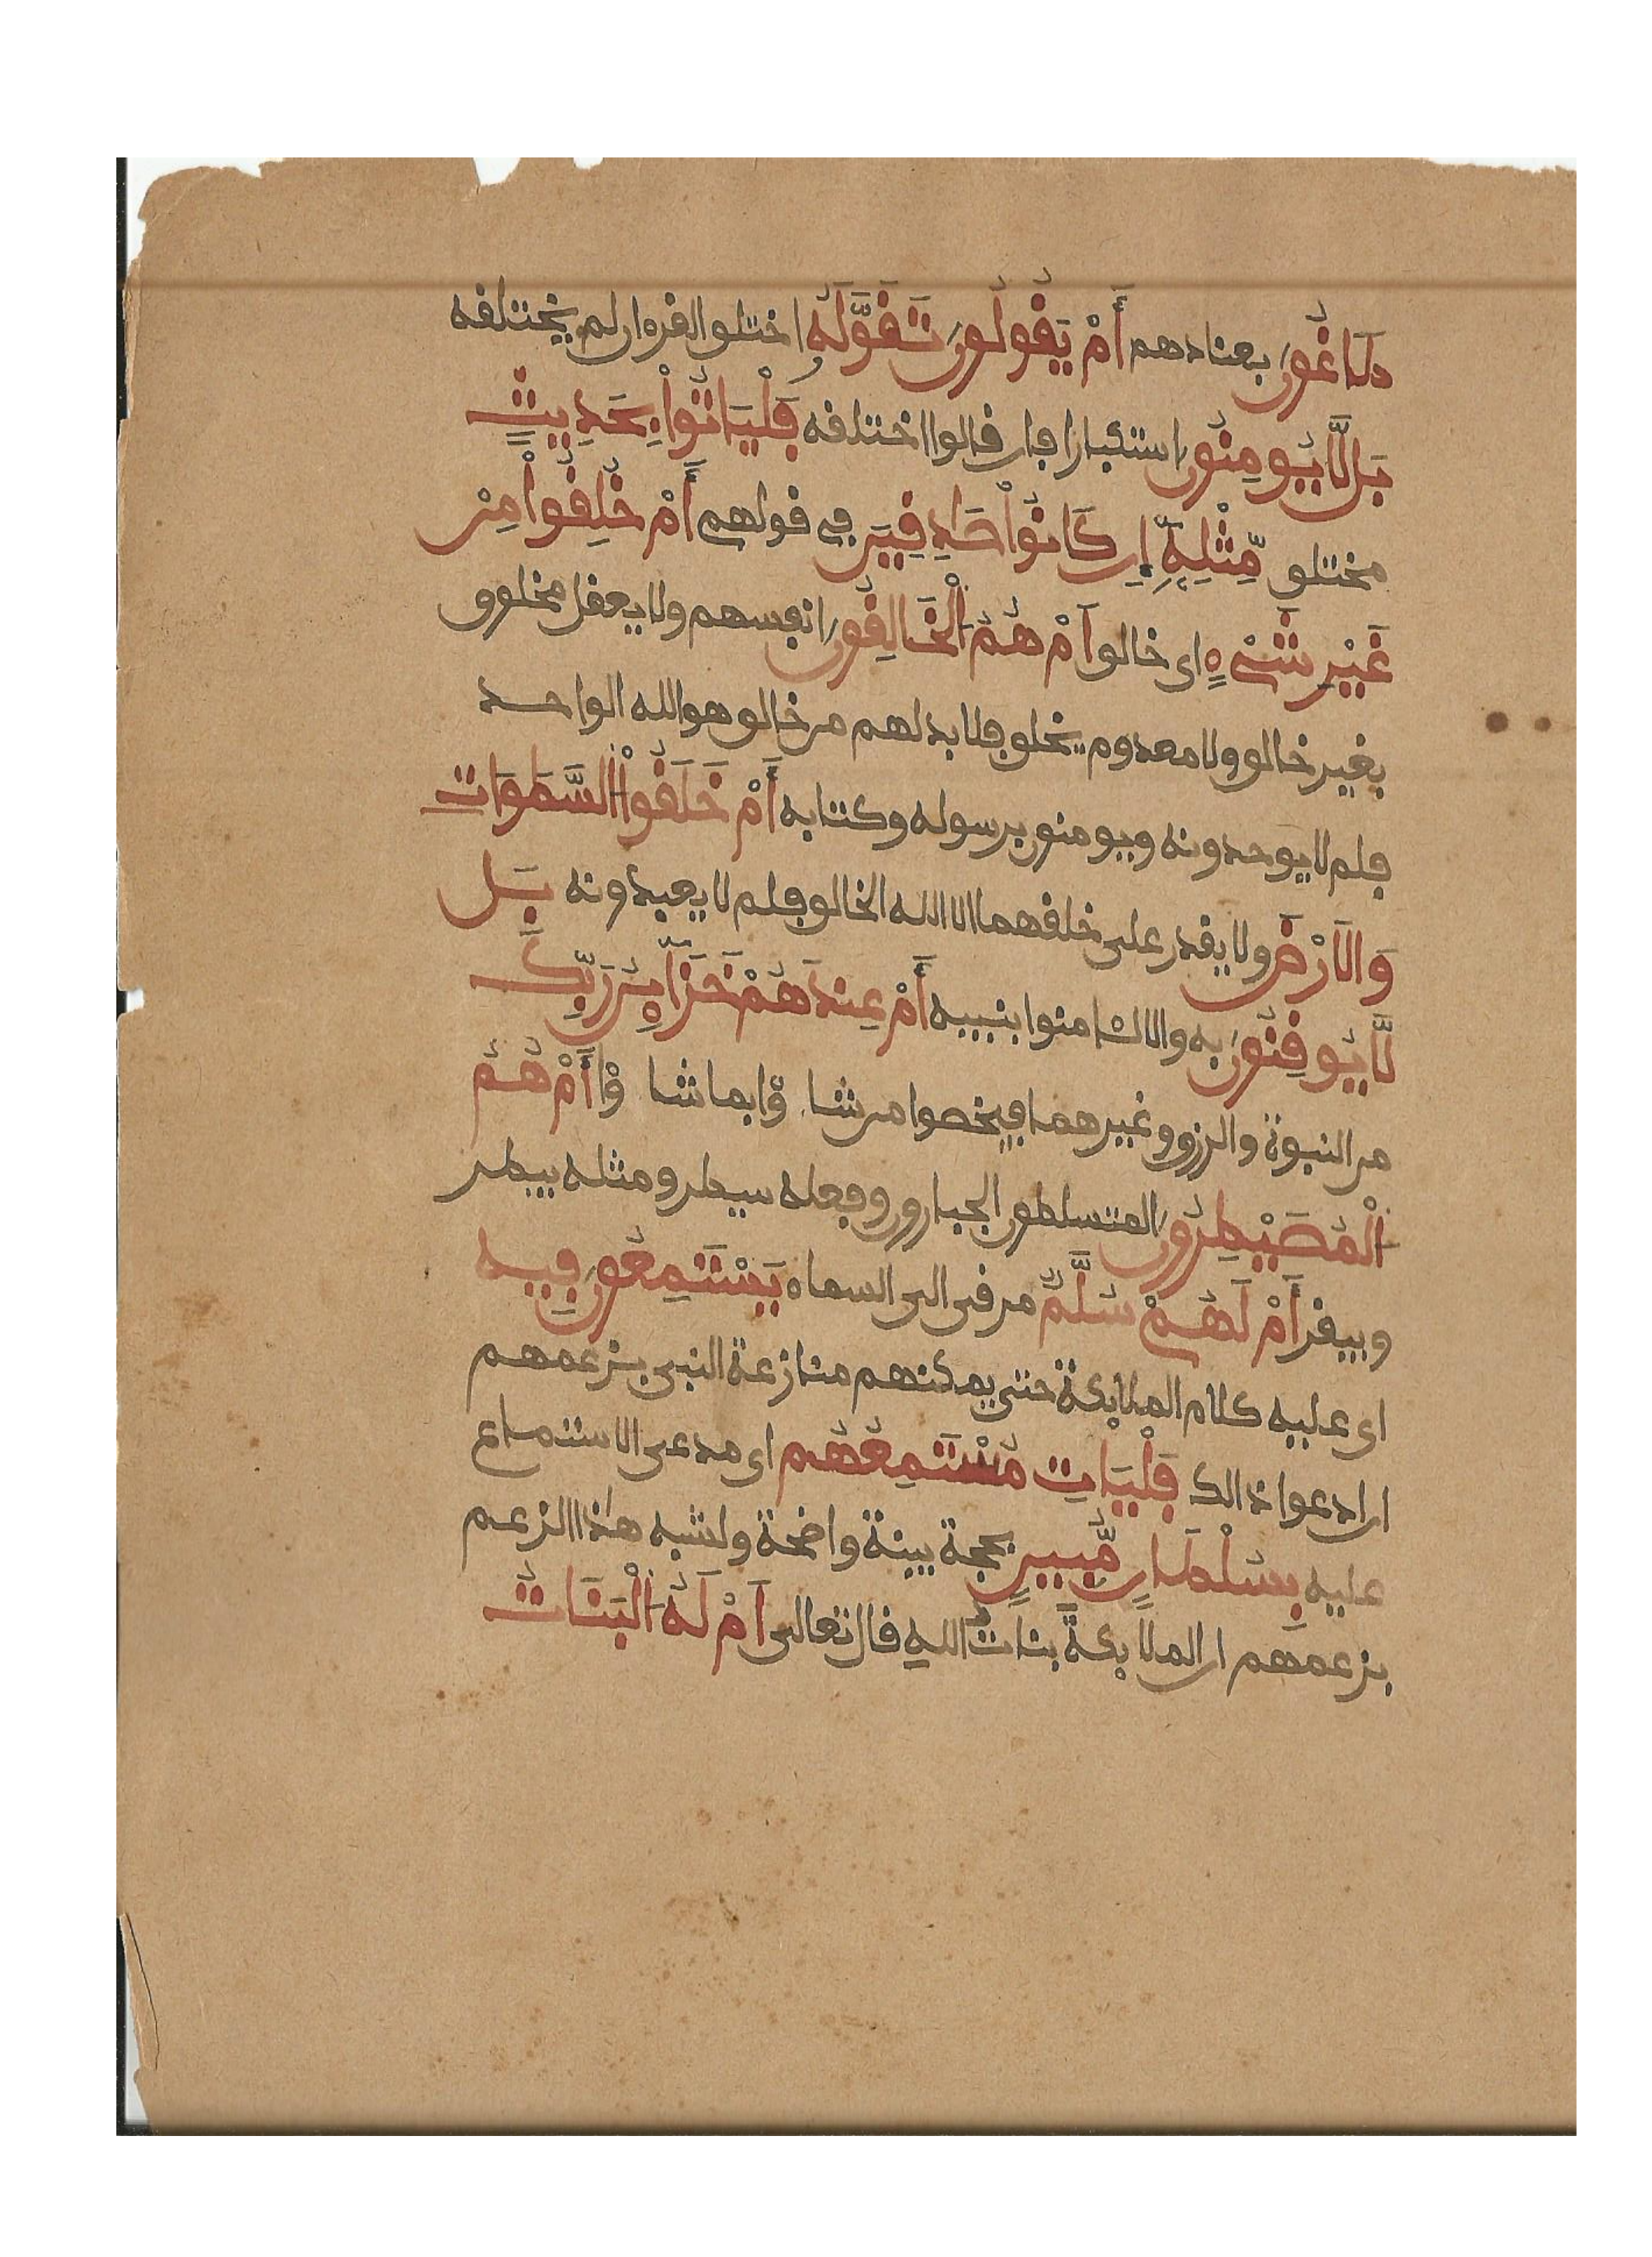 طَاغُونَ بعنادهم أَمْ يَقُولُونَ تَقَوَّلَهُ اختلق القرءان لم يختلقه
بَل لَّا يُومِنُونَ استكبارا فان قالوا اختلقه فَلْيَاتُواْ بِحَدِيثٍ
مختلق مِّثْلِهِ إِن كَانُواْ صَٰدِقِينَ في قولهم أَمْ خُلِقُواْ مِنْ
غَيْرِ شَيْءٍ اى خالق أَمْ هُمُ الْخَالِقُونَ انفسهم ولا يعقل مخلوق
بغير خالق ولا معدوم يخلق فلا بد لهم من خالق هو الله الواحد
فلم لا يوحدونه ويومنون برسوله وكتابه أَمْ خَلَقُواْ السَّمَٰوَٰتِ
وَالَارْضَ ولا يقدر على خلقهما الا الله الخالق فلم لا يعبدونه بَل
لَّا يُوقِنُونَ به والا لئامنوا بنبيه أَمْ عِندَهُمْ خَزَآئِنُ رَبِّكَ
من النبوة والرزق وغيرهما فيخصوا من شاءوا بما شاءوا أَمْ هُمُ
الْمُصَيْطِرُونَ المتسلطون الجبارون وفعله سيطر ومثله بيطر
وبيقر أَمْ لَهُمْ سُلَّمٌ مرقى الى السماء يَسْتَمِعُونَ فِيهِ
اى عليه كلام الملائكة حتى يمكنهم منازعة النبى بزعمهم
ان ادعوا ذالك فَلْيَاتِ مُسْتَمِعُهُم اى مدعى الاستماع
عليه بِسُلْطَٰنٍ مُّبِينٍ بحجة بينة واضحة ولشبه هذا الزعم
بزعمهم ان الملائكةَ بناتُ اللهِ قال تعالى أَمْ لَهُ الْبَنَاتُ